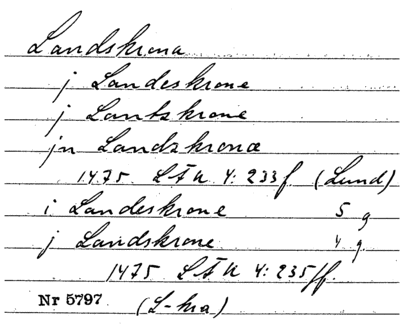 Landskrona
j Landeskrone
j Lantzkrone
jn Landzkronæ
1475 LÄU 4:233f (Lund)
i Landeskrone 5 g
j Landskrone 4 g.
1475 LÄU 4:235ff.
Nr 5797 (L-kra)